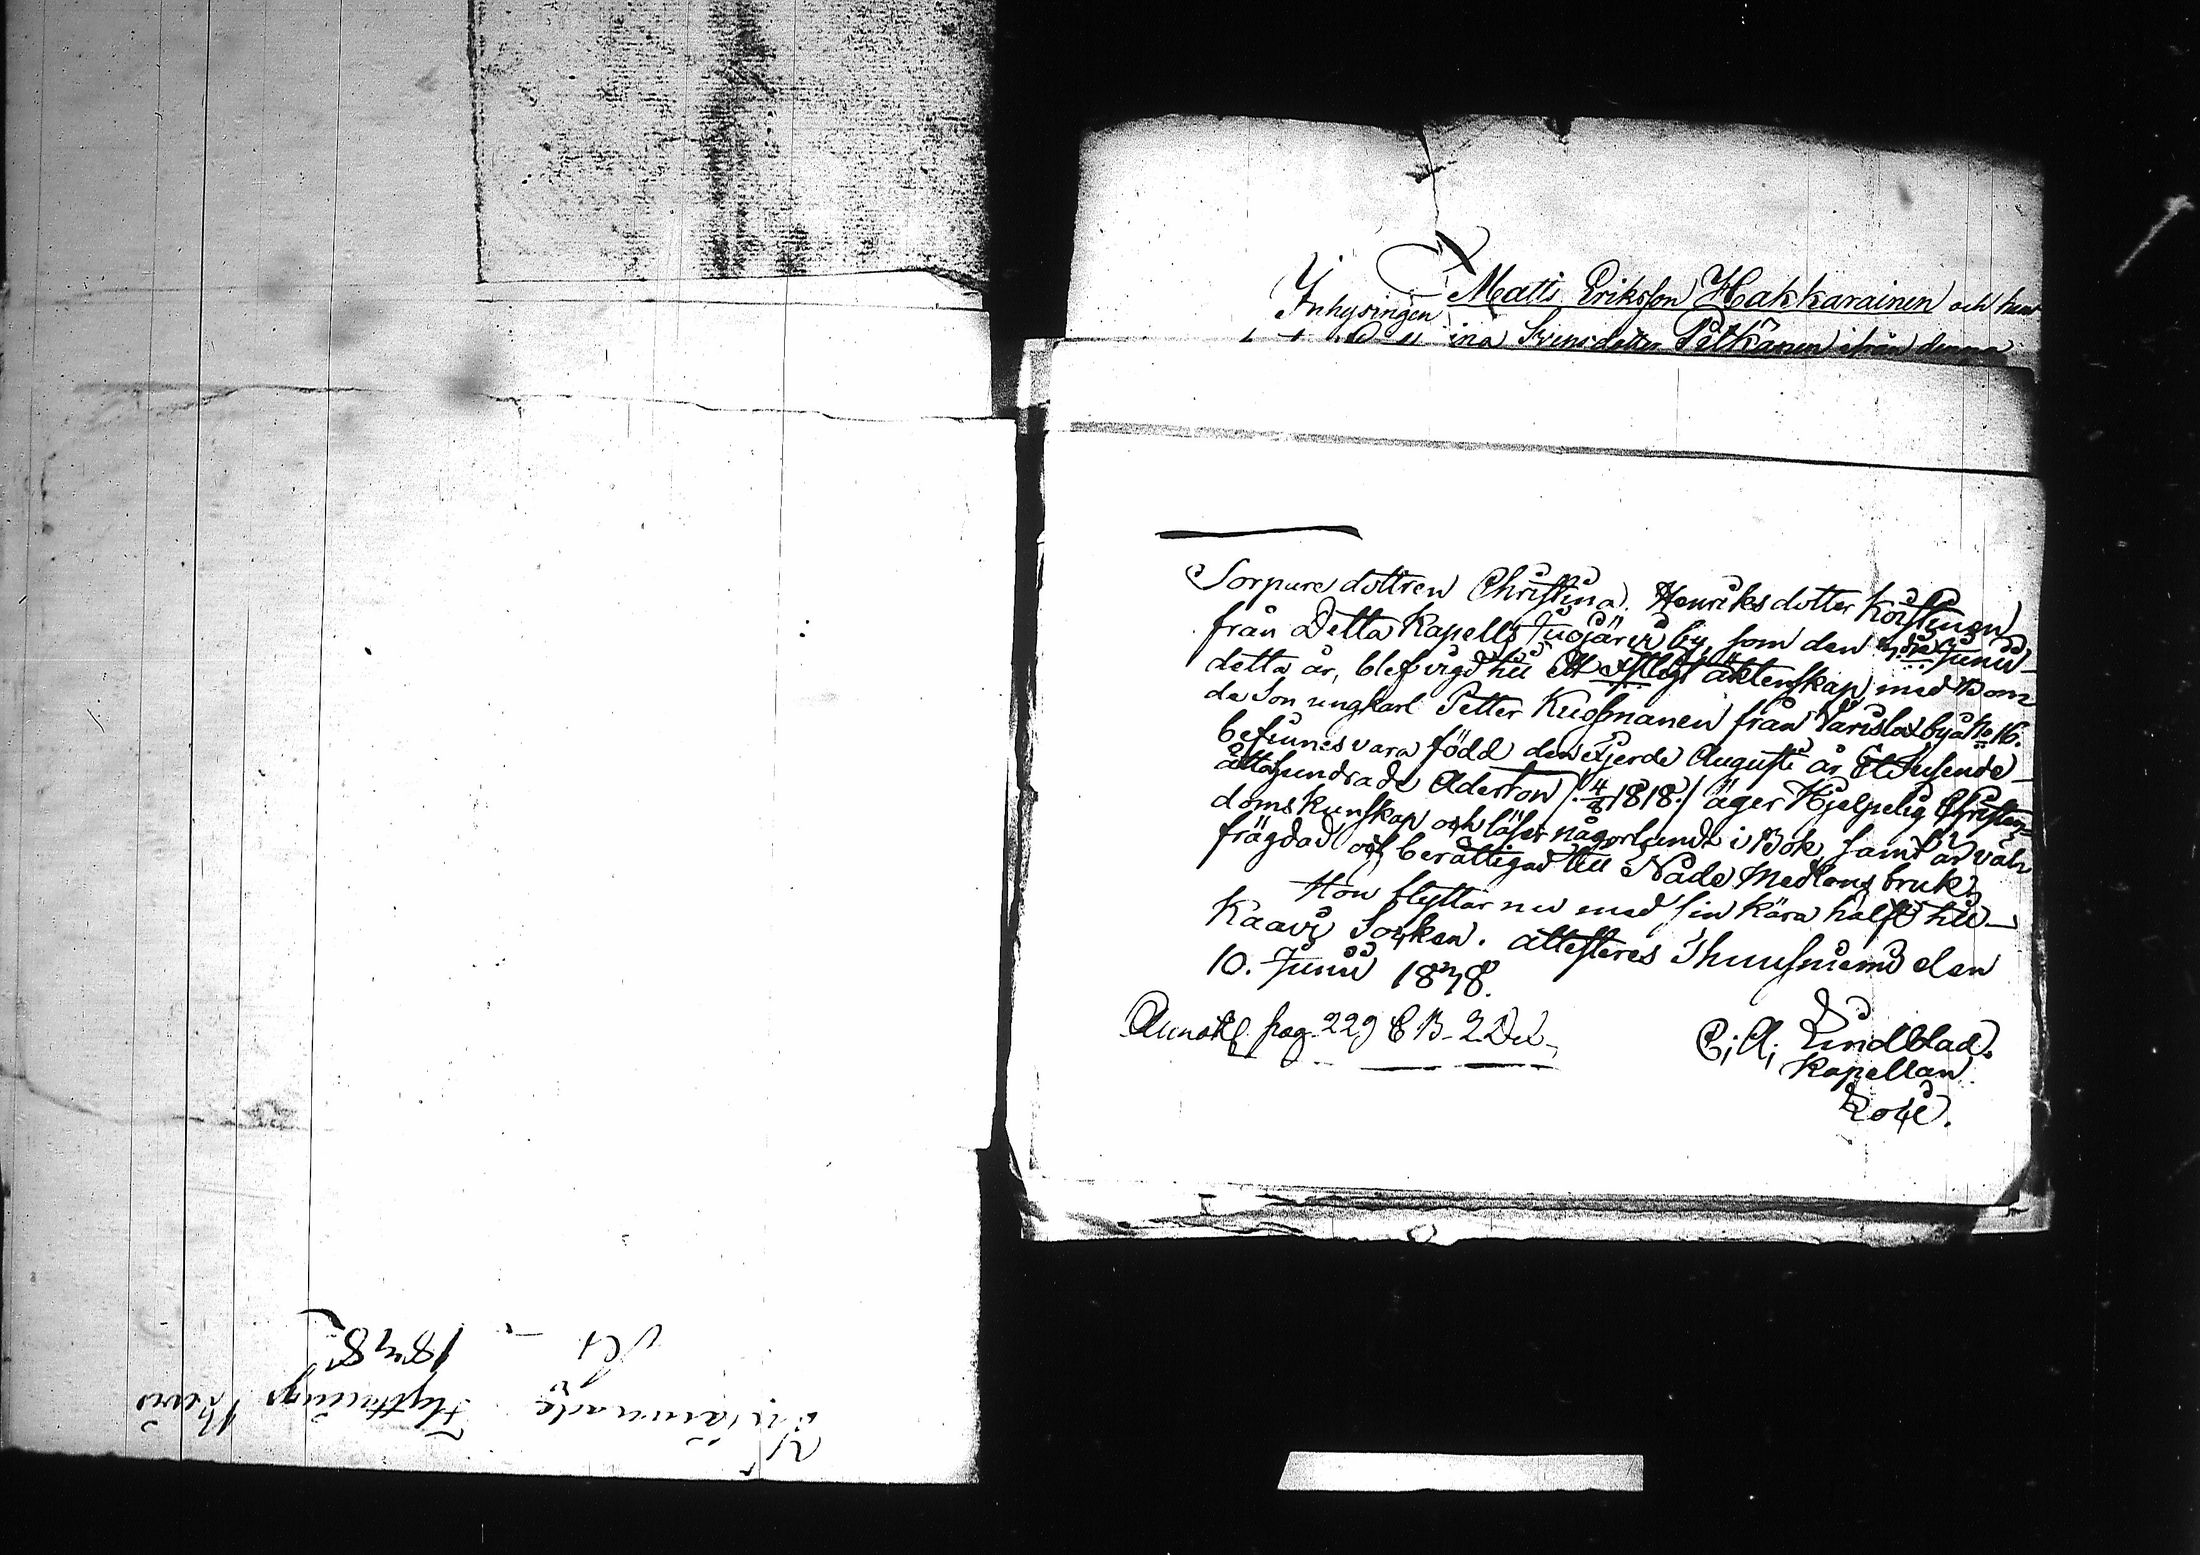 Inhysingen Matts Eriksson Hakkarainen och hans
ina Svensdotter Pitkänen ifrån denna
Torpare dottren Christina Henriksdotter Korhonen
från Detta Kapells Juojärvi by, som den Junii
detta år, blef vigd till ett ägta äktenskap med Bon
de Son ungkarl Petter Kuosmanen från Varislax by No 16.
befinnes vara född den Fjerde Augusti år Ettusende
åttahundrade Aderton /: 4/8 1818 :/ äger Hjelpelig Christen-
doms Kunskap och läser någorlunda i Bok samt är väl
frägdad och berättigad till Nåde Medlens bruk.
Hon flyttar nu med sin kära hälft till
Kaavi Socken. attesteres Thuusniemi den
10. Junii 1848.
Annot. pag. 229 C B. 2 Del
C; A; Lindblad.
Kapellan
Loci.
Inlämnade Flyttnings Bevis
1848